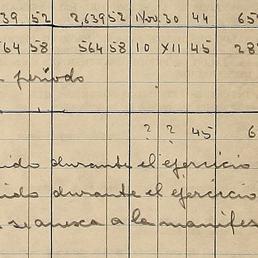 39 52 2,639 52 1 Nov. 30 44 65
564 58 564 58 10 XII 45 28
periodo
? ? 45 6
ido durante el ejercicio
ido durante el ejercicio
se anexa a la manifes